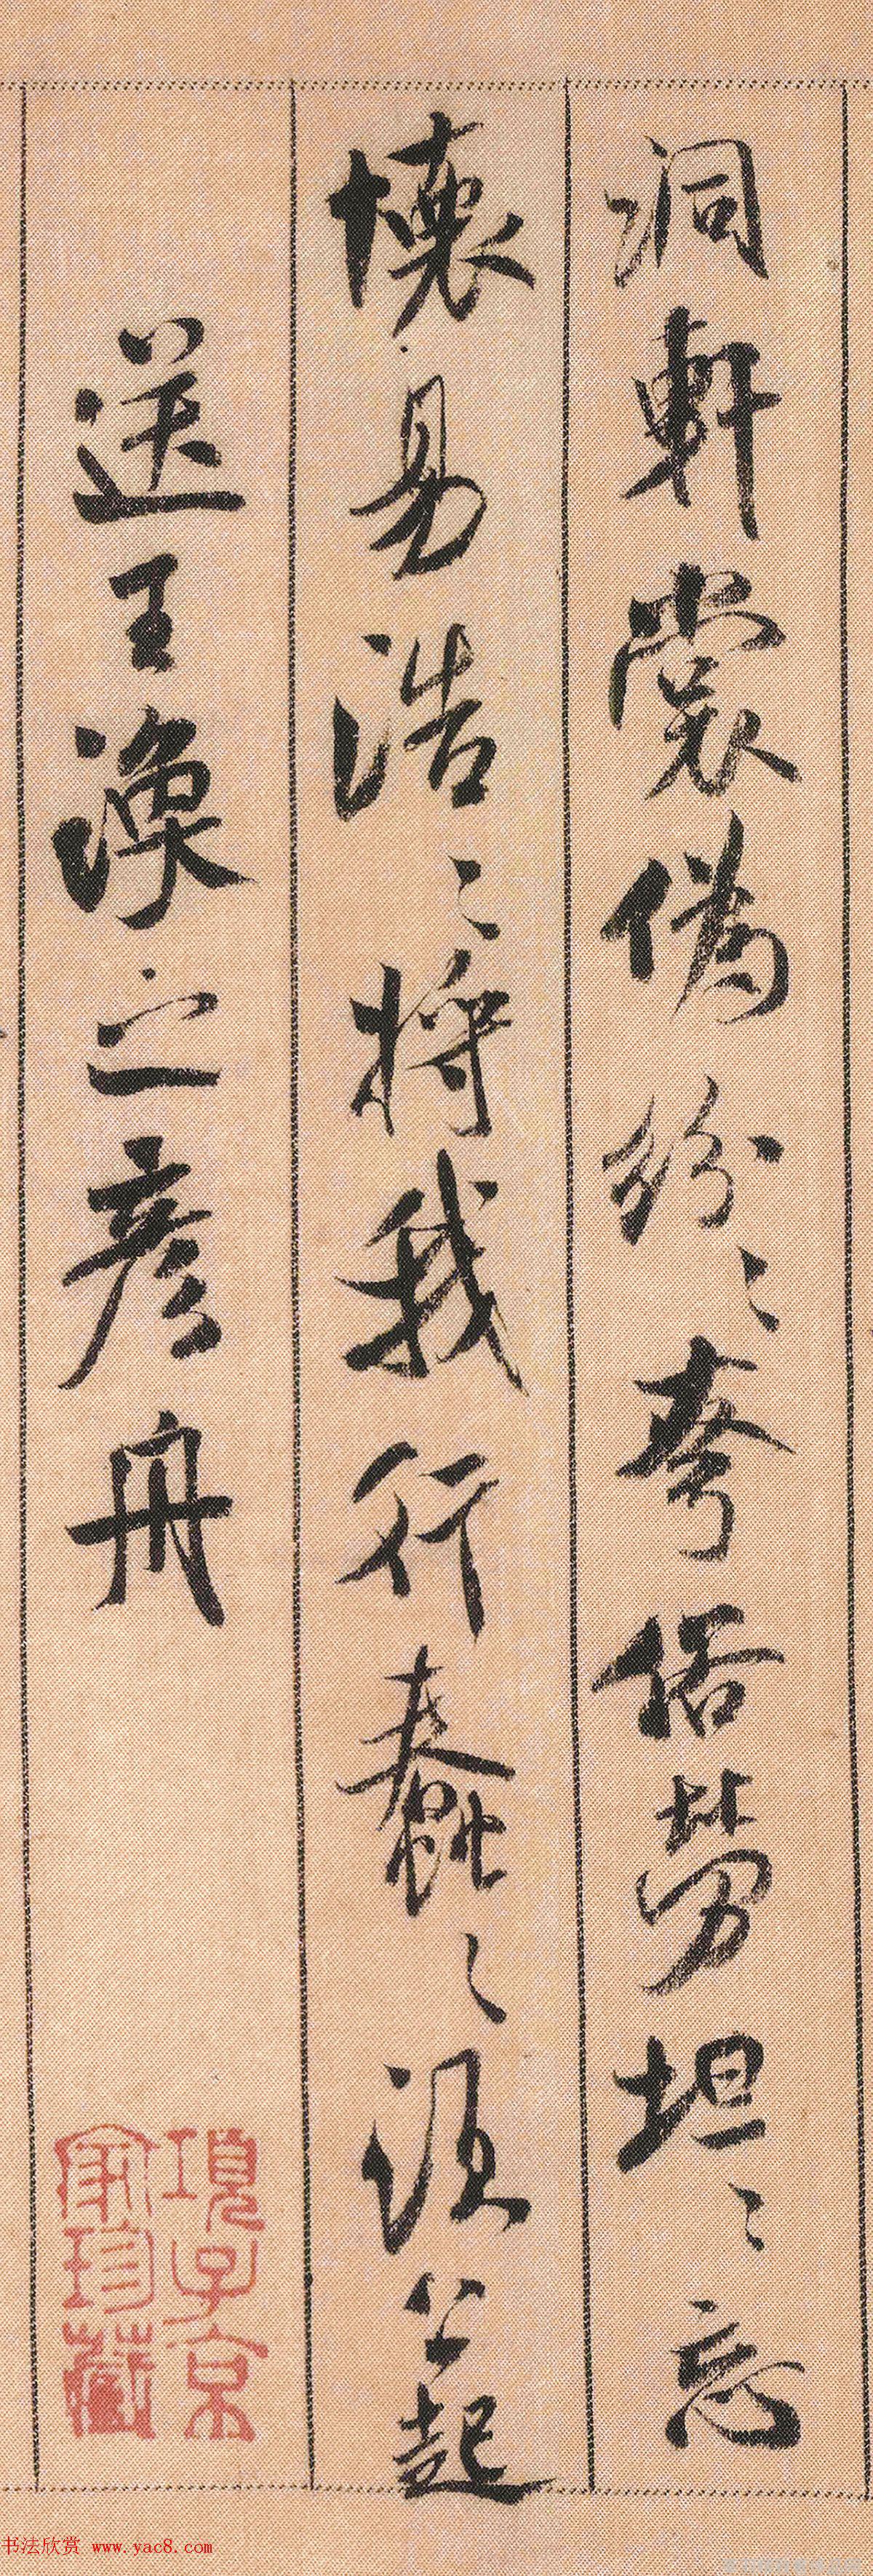 洞軒裳偽紛〻夸俗勞坦〻忘
懷易浩〻將我行蠢〻須公起
送王渙之彥舟
項子京
家珍藏
书法欣赏 www.yac8.com